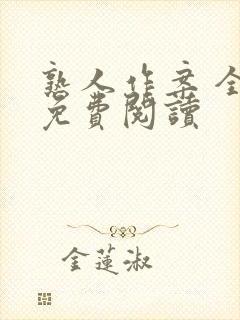 熟人作案全
免費閱讀
金蓮淑